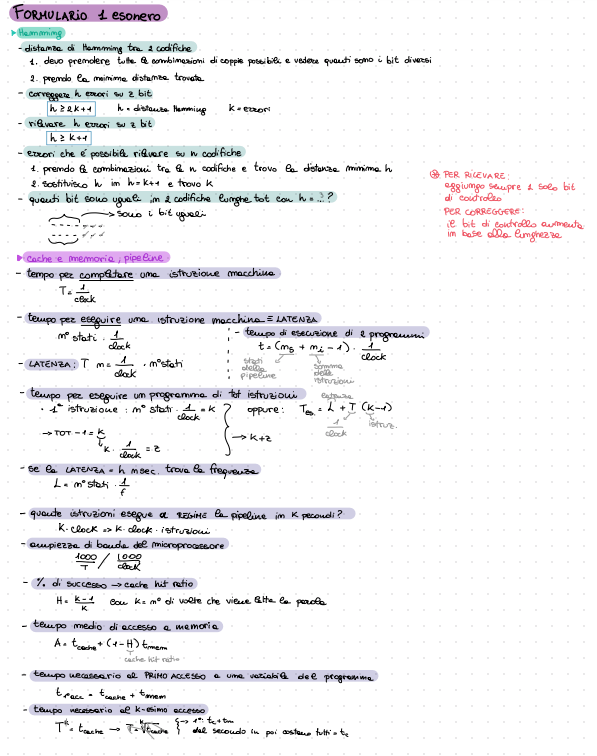 FORMULARIO 1 esonero
Hamming
- distanza di Hamming tra 2 codifiche
1. devo prendere tutte le combinazioni di coppie possibili e vedere quanti sono i bit diversi
2. prendo la minima distanza trovata
- correggere h errori su z bit
h ≥ 2k+1 h = distanza Hamming k = errori
- rilevare h errori su z bit
h ≥ k+1
- errori che è possibile rilevare su n codifiche
1. prendo le combinazioni tra le n codifiche e trovo la distanza minima h
2. sostituisco h in h=k+1 e trovo k
- quanti bit sono uguali in 2 codifiche lunghe tot con h = ...?
→ sono i bit uguali
PER RILEVARE:
aggiungo sempre 1 solo bit
di controllo
PER CORREGGERE:
il bit di controllo aumenta
in base alla lunghezza
cache e memoria, pipeline
- tempo per completare una istruzione macchina
T = 1/clock
- tempo per eseguire una istruzione macchina ≡ LATENZA
n° stati · 1/clock
- LATENZA: T n = 1/clock · n° stati
- tempo di esecuzione di 2 programmi
t = (ns + ni - 1) · 1/clock
stati della pipeline
somma delle istruzioni
- tempo per eseguire un programma di tot istruzioni
• 1ª istruzione: n° stati · 1/clock = k
→ TOT - 1 = k
k · 1/clock = z
→ k+z
oppure: Tes = L + T (k-1)
latenza
1/clock
istruz.
- se la LATENZA = h nsec. trova la frequenza
L = n° stati · 1/f
- quante istruzioni esegue a REGIME la pipeline in k secondi?
k · clock => k · clock · istruzioni
- ampiezza di banda del microprocessore
1000/T / 1000/clock
- % di successo → cache hit ratio
H = k-1/k con k = n° di volte che viene letta la parola
- tempo medio di accesso a memoria
A = tcache + (1-H) tmem
cache hit ratio
- tempo necessario al PRIMO ACCESSO a una variabile del programma
t1°acc = tcache + tmem
- tempo necessario al k-esimo accesso
T^k = tcache → 1°: tc + tm
dal secondo in poi costano tutti = tc